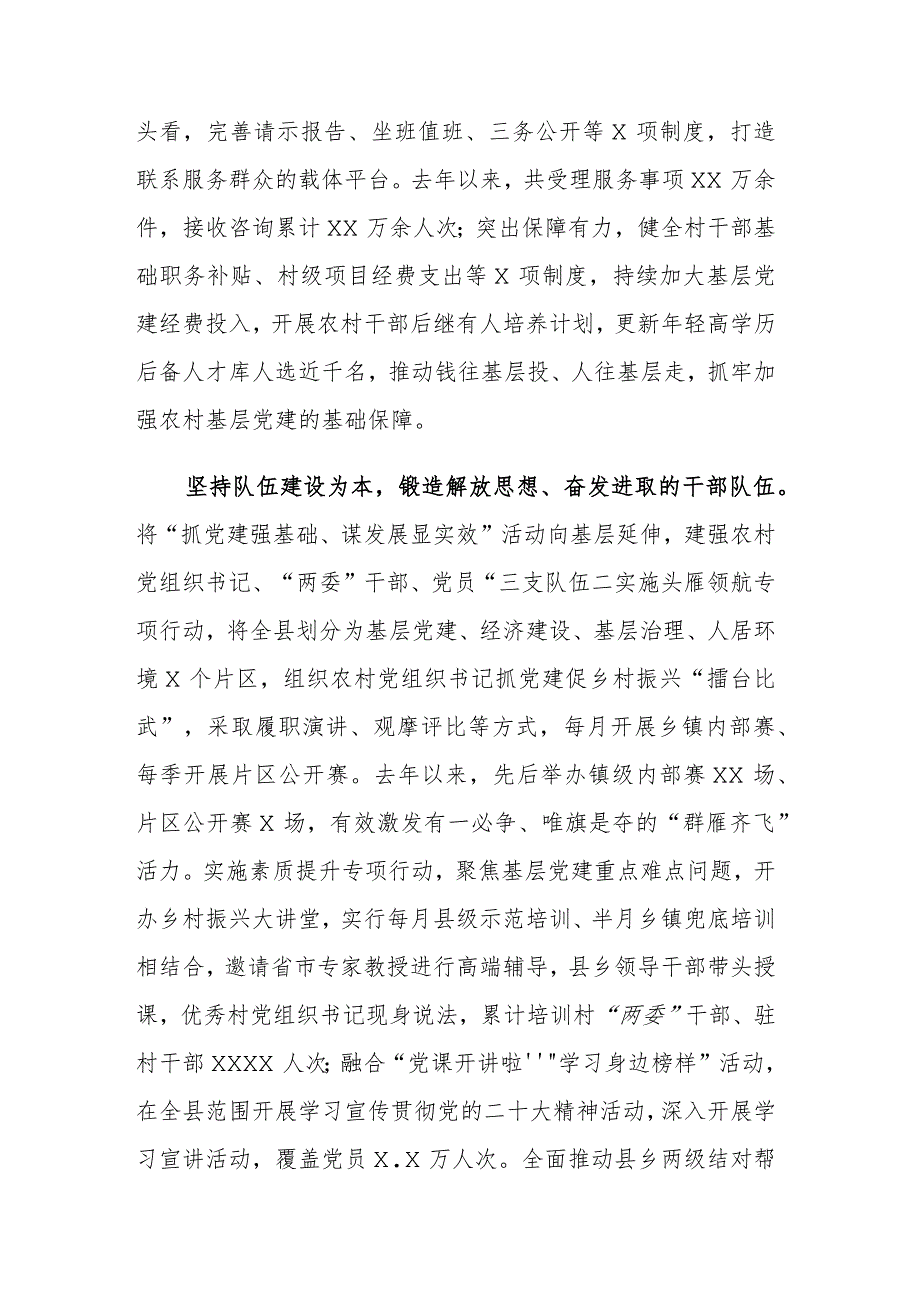 头看，完善请示报告、坐班值班、三务公开等 X 项制度，打造
联系服务群众的载体平台。去年以来，共受理服务事项 XX 万余
件，接收咨询累计 XX 万余人次；突出保障有力，健全村干部基
础职务补贴、村级项目经费支出等 X 项制度，持续加大基层党
建经费投入，开展农村干部后继有人培养计划，更新年轻高学历
后备人才库人选近千名，推动钱往基层投、人往基层走，抓牢加
强农村基层党建的基础保障。
坚持队伍建设为本，锻造解放思想、奋发进取的干部队伍。
将“抓党建强基础、谋发展显实效”活动向基层延伸，建强农村
党组织书记、“两委”干部、党员“三支队伍二实施头雁领航专
项行动，将全县划分为基层党建、经济建设、基层治理、人居环
境 X 个片区，组织农村党组织书记抓党建促乡村振兴“擂台比
武”，采取履职演讲、观摩评比等方式，每月开展乡镇内部赛、
每季开展片区公开赛。去年以来，先后举办镇级内部赛 XX 场、
片区公开赛 X 场，有效激发有一必争、唯旗是夺的“群雁齐飞”
活力。实施素质提升专项行动，聚焦基层党建重点难点问题，开
办乡村振兴大讲堂，实行每月县级示范培训、半月乡镇兜底培训
相结合，邀请省市专家教授进行高端辅导，县乡领导干部带头授
课，优秀村党组织书记现身说法，累计培训村“两委”干部、驻
村干部 XXXX 人次；融合“党课开讲啦''"学习身边榜样”活动，
在全县范围开展学习宣传贯彻党的二十大精神活动，深入开展学
习宣讲活动，覆盖党员 X.X 万人次。全面推动县乡两级结对帮